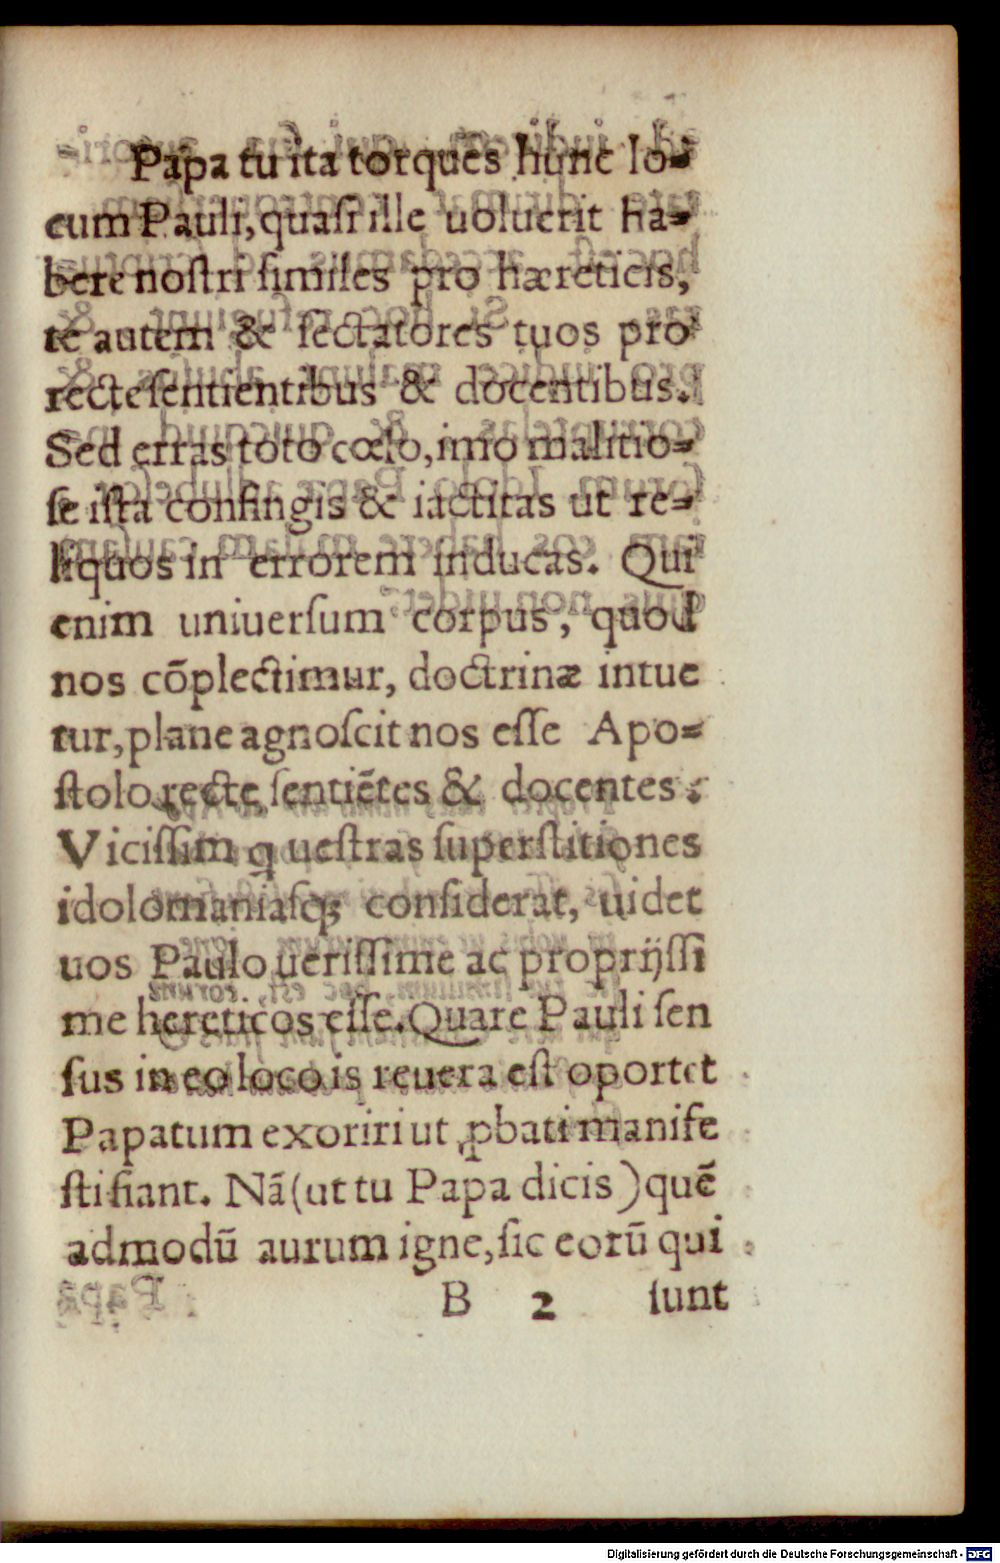 Papa tu ita torques hunc lo⸗
cum Pauli, quaſi ille uoluerit ha⸗
bere noſtri ſimiles pro hæreticis,
te autem & ſectatores tuos pro
recte ſentientibus & docentibus.
Sed erras toto cœlo, imo malitio⸗
ſe iſta confingis & iactitas ut re⸗
liquos in errorem inducas. Qui
enim uniuerſum corpus, quod
nos cõplectimur, doctrinæ intue
tur, plane agnoſcit nos eſſe Apo⸗
ſtolo recte ſentiẽtes & docentes:
Viciſſim ꝗ ueſtras ſuperſtitiones
idolomaniaſꝗ; conſiderat, uidet
uos Paulo ueriſſime ac proprijſſi
me hereticos eſſe. Quare Pauli ſen
ſus in eo loco is reuera eſt oportet
Papatum exoriri ut ꝓbati manife
ſti fiant. Nã (ut tu Papa dicis) quẽ
admodũ aurum igne, ſic eorũ qui
B 2 ſunt
Digitalisierung gefördert durch die Deutsche Forschungsgemeinschaft - DFG